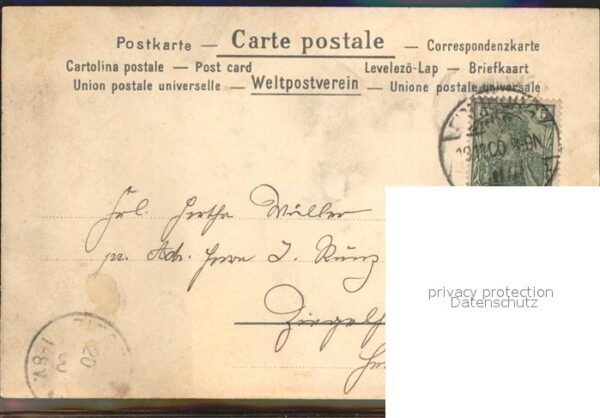 Postkarte — Carte postale — Correspondenzkarte
Cartolina postale — Post card Levelezö-Lap — Briefkaart
Union postale universelle — Weltpostverein — Unione postale universale
5
8-9N
Frl. Hertha Müller
pr. Adr. Herrn I. Kunz
Ziegelh
privacy protection
Datenschutz
20
00
7-8V.